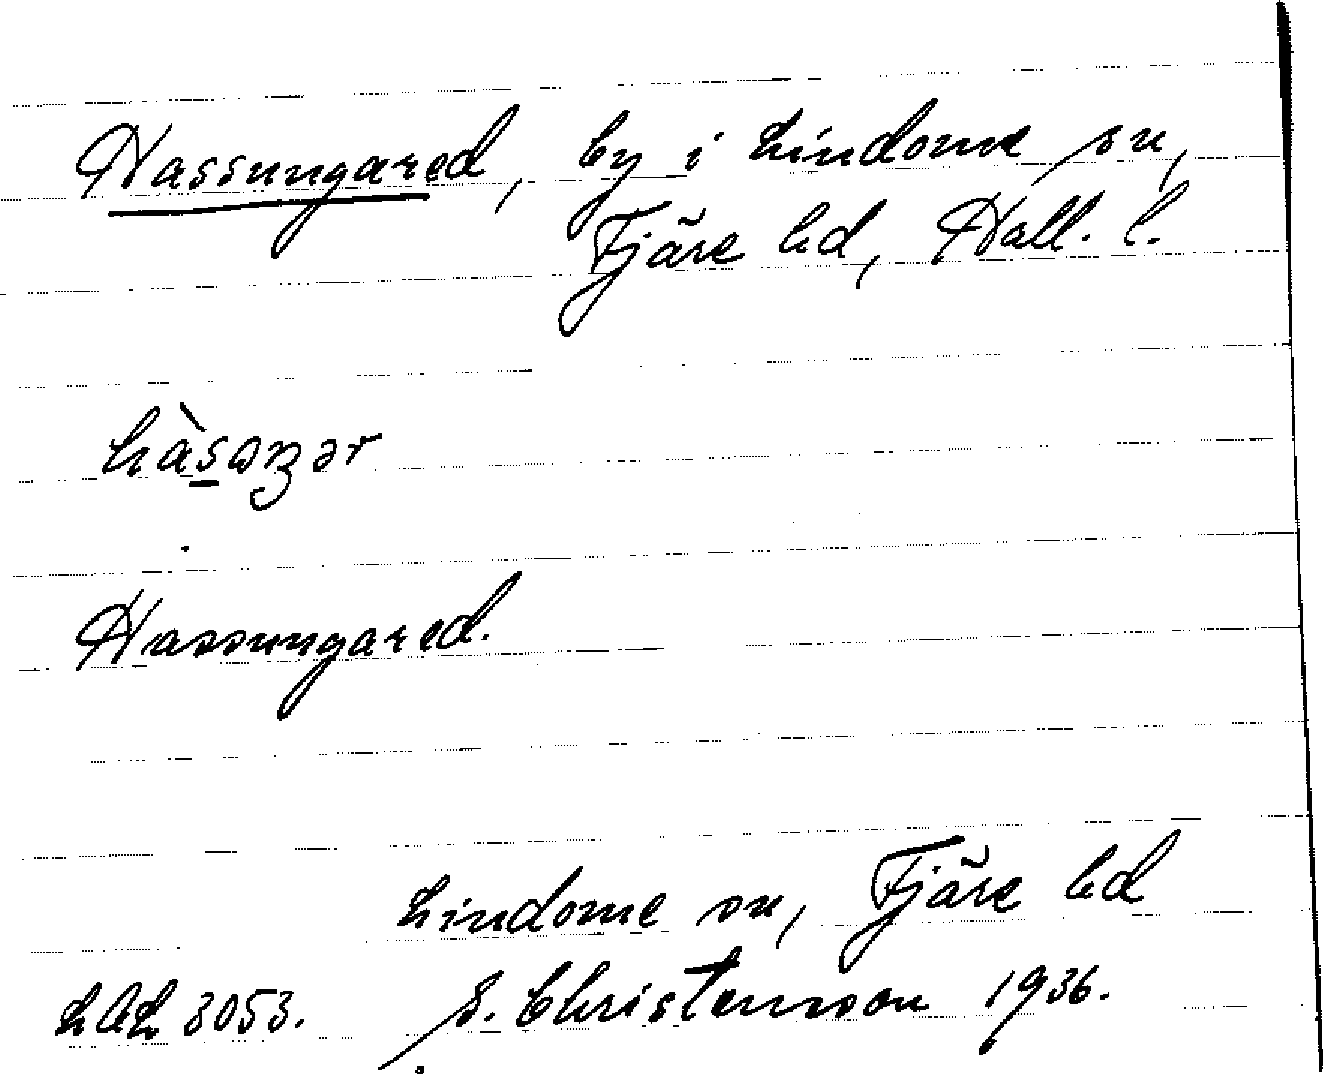 Hassungared, by i Lindome sn,
Fjäre hd, Hall. l.
Hassungared.
Lindome sn, Fjäre hd
LAL 3053. S. Christensson 1936.